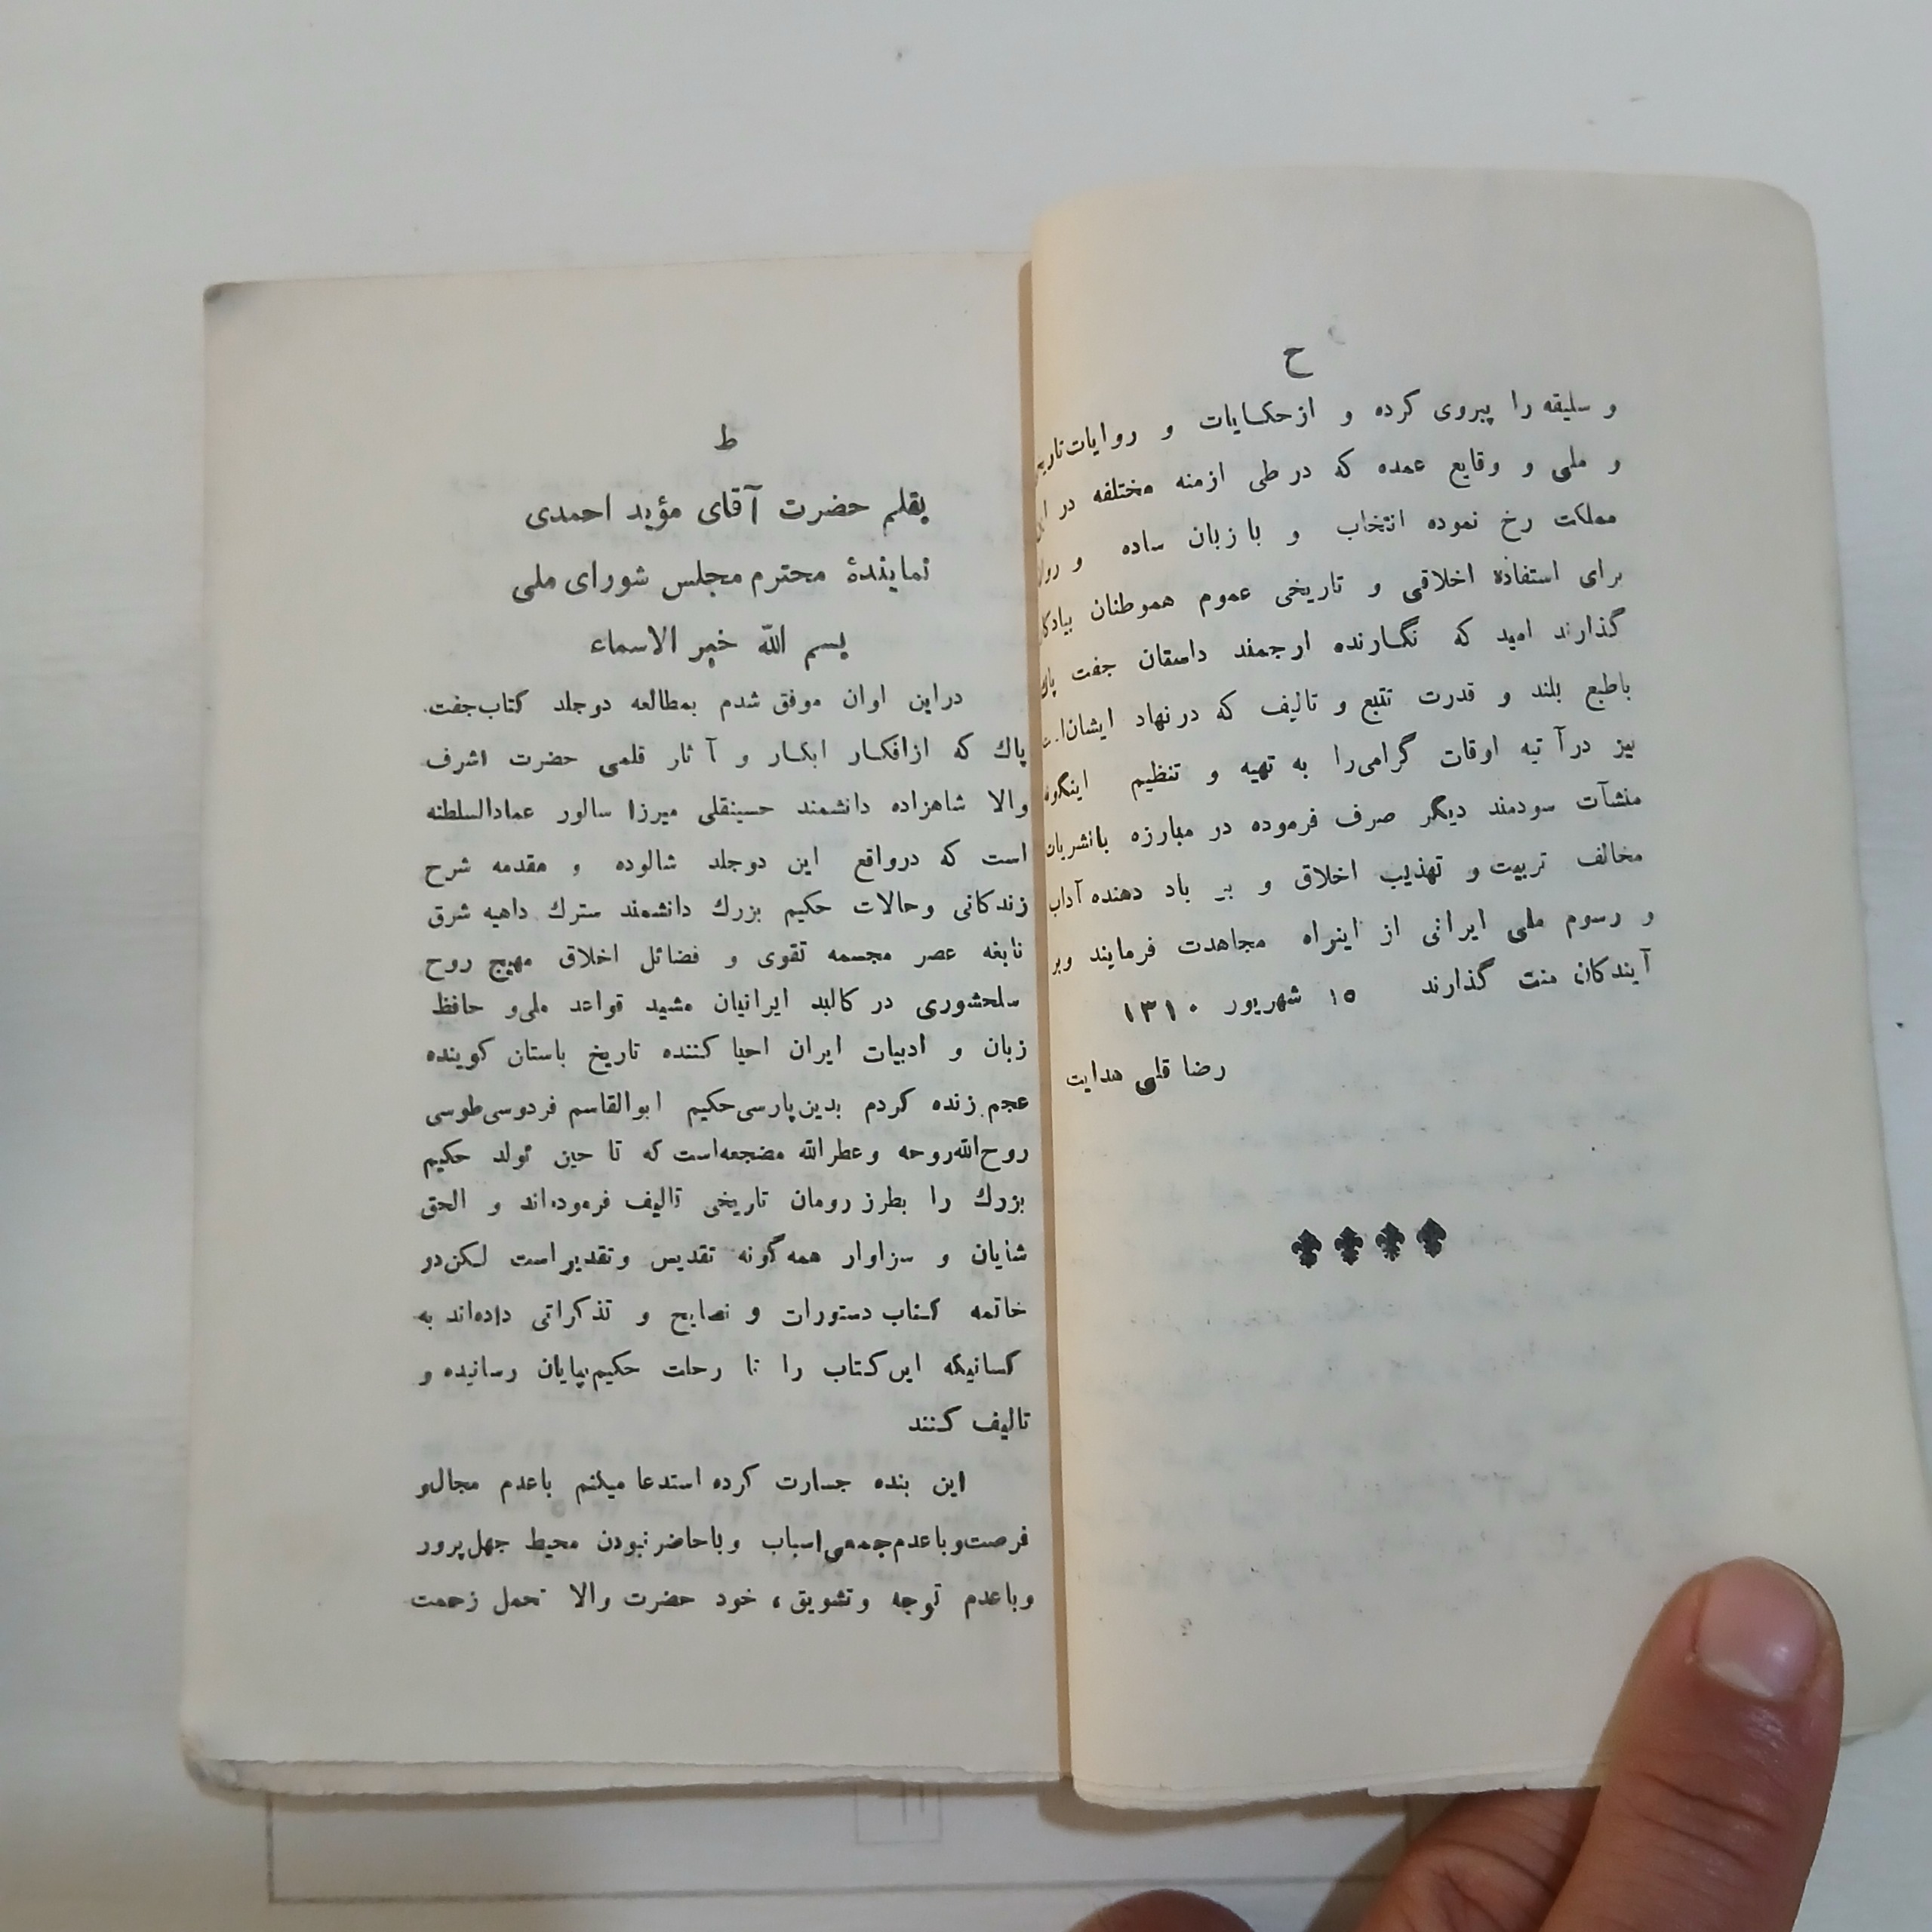 ح
و سلیقه را پیروی کرده و از حکایات و روایات
و ملی و وقایع عمده که در طی ازمنه مختلفه در
مملکت رخ نموده انتخاب و با زبان ساده و
برای استفادهٔ اخلاقی و تاریخی عموم هموطنان
گذارند امید که نگارنده ارجمند داستان جفت پاك
باطبع بلند و قدرت تتبع و تالیف که در نهاد ایشان است
نیز در آتیه اوقات گرامی‌را به تهیه و تنظیم اینگونه
منشآت سودمند دیگر صرف فرموده در مبارزه بانشریات
مخالف تربیت و تهذیب اخلاق و بر باد دهنده آداب
و رسوم ملی ایرانی از اینراه مجاهدت فرمایند وبر
آیندکان منت گذارند ۱۵ شهریور ۱۳۱۰
رضا قلی هدایت
ط
بقلم حضرت آقای مؤید احمدی
نمایندهٔ محترم مجلس شورای ملی
بسم الله خیر الاسماء
دراین اوان موفق شدم بمطالعه دوجلد کتاب جفت
پاك که ازافکار ابکار و آثار قلمی حضرت اشرف
والا شاهزاده دانشمند حسینقلی میرزا سالور عمادالسلطنه
است که درواقع این دوجلد شالوده و مقدمه شرح
زندکانی وحالات حکیم بزرك دانشمند سترك داهیه شرق
نابغه عصر مجسمه تقوی و فضائل اخلاق مهیج روح
سلحشوری در کالبد ایرانیان مشید قواعد ملی‌و حافظ
زبان و ادبیات ایران احیا کننده تاریخ باستان کوینده
عجم زنده کردم بدین پارسی حکیم ابوالقاسم فردوسی طوسی
روح‌الله‌روحه وعطرالله مضجعه‌است که تا حین تولد حکیم
بزرك را بطرز رومان تاریخی تالیف فرموده‌اند و الحق
شایان و سزاوار همه گونه تقدیس وتقدیر است لکن‌در
خاتمه کتاب دستورات و نصایح و تذکراتی داده‌اند به
کسانیکه این کتاب را تا رحلت حکیم بپایان رسانیده و
تالیف کنند
این بنده جسارت کرده استدعا میکنم باعدم مجال‌و
فرصت‌وباعدم‌جمعی‌اسباب وباحاضر نبودن محیط جهل‌پرور
وباعدم توجه وتشویق، خود حضرت والا تحمل زحمت